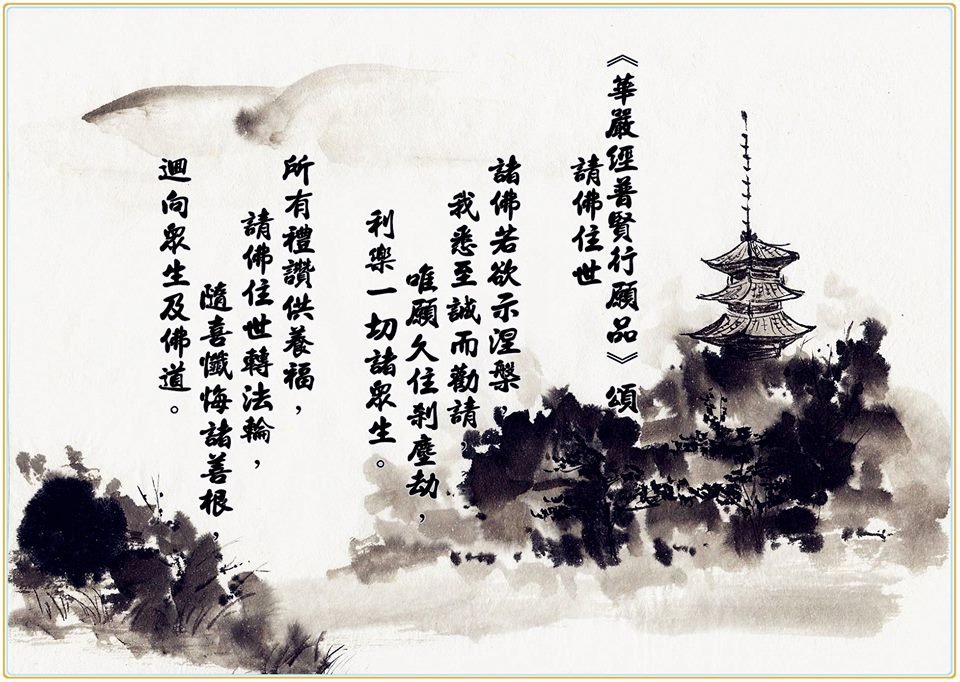 《華嚴經普賢行願品》頌
請佛住世
諸佛若欲示涅槃，
我悉至誠而勸請，
唯願久住剎塵劫，
利樂一切諸眾生。
所有禮讚供養福，
請佛住世轉法輪，
隨喜懺悔諸善根，
迴向眾生及佛道。